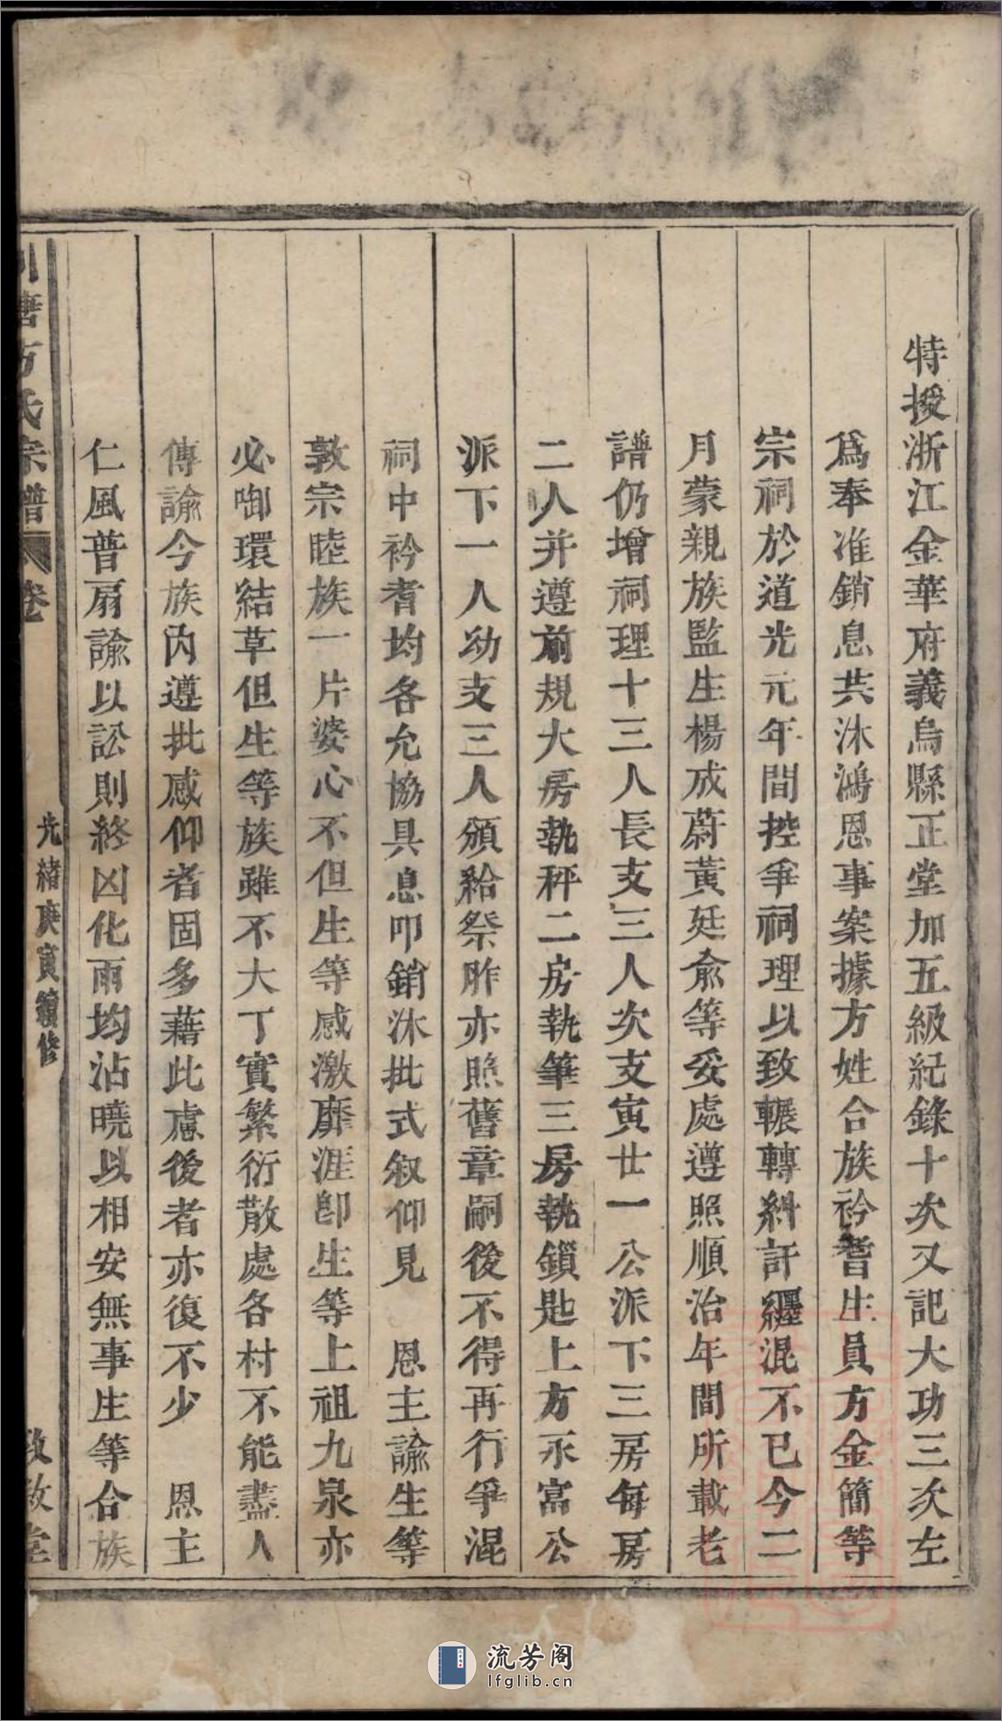 特授浙江金華府義烏縣正堂加五級紀錄十次又記大功三次左
爲奉准銷息共沐鴻恩事案據方姓合族衿耆生員方金簡等
宗祠於道光元年間控爭祠理以致輾轉糾訐纒混不已今二
月蒙親族監生楊成蔚黃廷俞等妥處遵照順治年間所載老
譜仍增祠理十三人長支三人次支寅廿一公派下三房每房
二人并遵前規大房執秤二房執筆三房執鎖匙上方永富公
派下一人幼支三人頒給祭胙亦照舊章嗣後不得再行爭混
祠中衿耆均各允協具息叩銷沐批式叙仰見 恩主諭生等
敦宗睦族一片婆心不但生等感激靡涯卽生等上祖九泉亦
必啣環結草但生等族雖不大丁實繁衍散處各村不能盡人
傳諭今族內遵批感仰者固多藉此慮後者亦復不少 恩主
仁風普扇諭以訟則終凶化雨均沾曉以相安無事生等合族
塘方氏宗譜 卷 光緒庚寅續修 敦堂
流芳阁
lfglib.cn